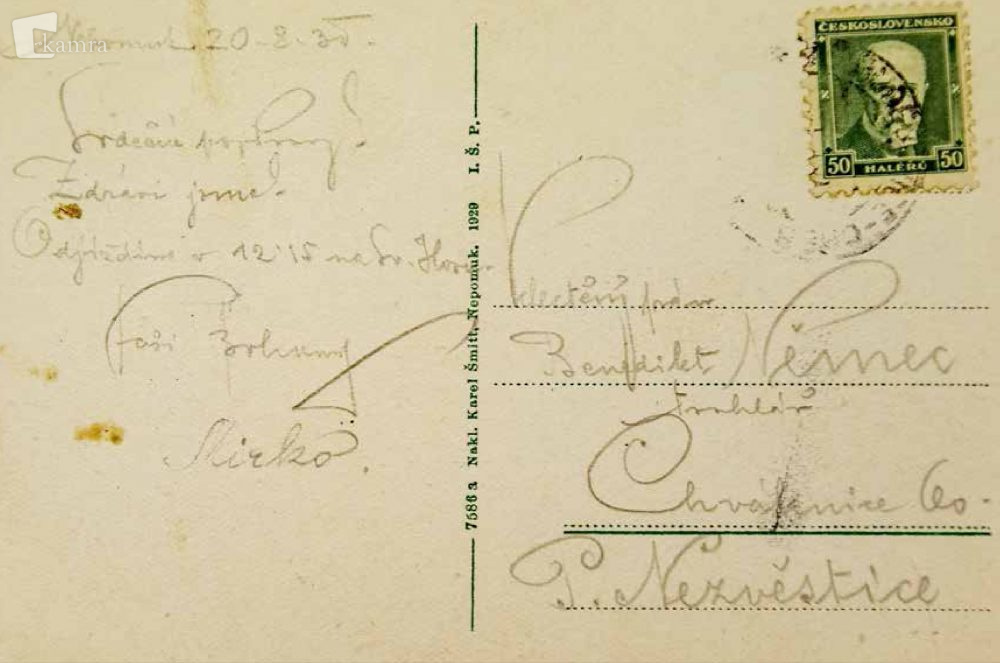 kamra
Nepomuk 20-8-35.
Srdečné pozdravy!
Zdrávi jsme.
Odjíždíme v 12˙15 na Sv. Horu.
Vaši
Mirko.
7586 a Nakl. Karel Šmitt, Nepomuk. 1929 I. Š. P.
ČESKOSLOVENSKO
50 HALÉRŮ 50
Velectěný pán
Benedikt Němec
truhlář
Chválenice 60-
P. Nezvěstice